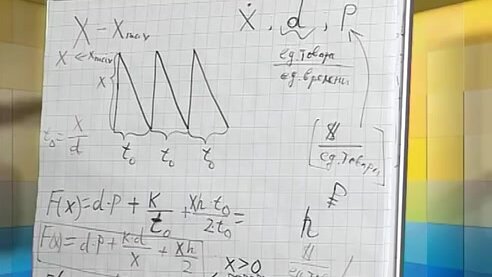 X - Xmax
X ← Xmax
X
t₀ t₀ t₀
t₀ = X/d
Ẋ, d, P
ед. товара
ед. времени
[$/ед. товара]
F(x) = d·P + K/t₀ + xh·t₀/2t₀ =
F(x) = d·P + K·d/x + xh/2
x > 0
h
$